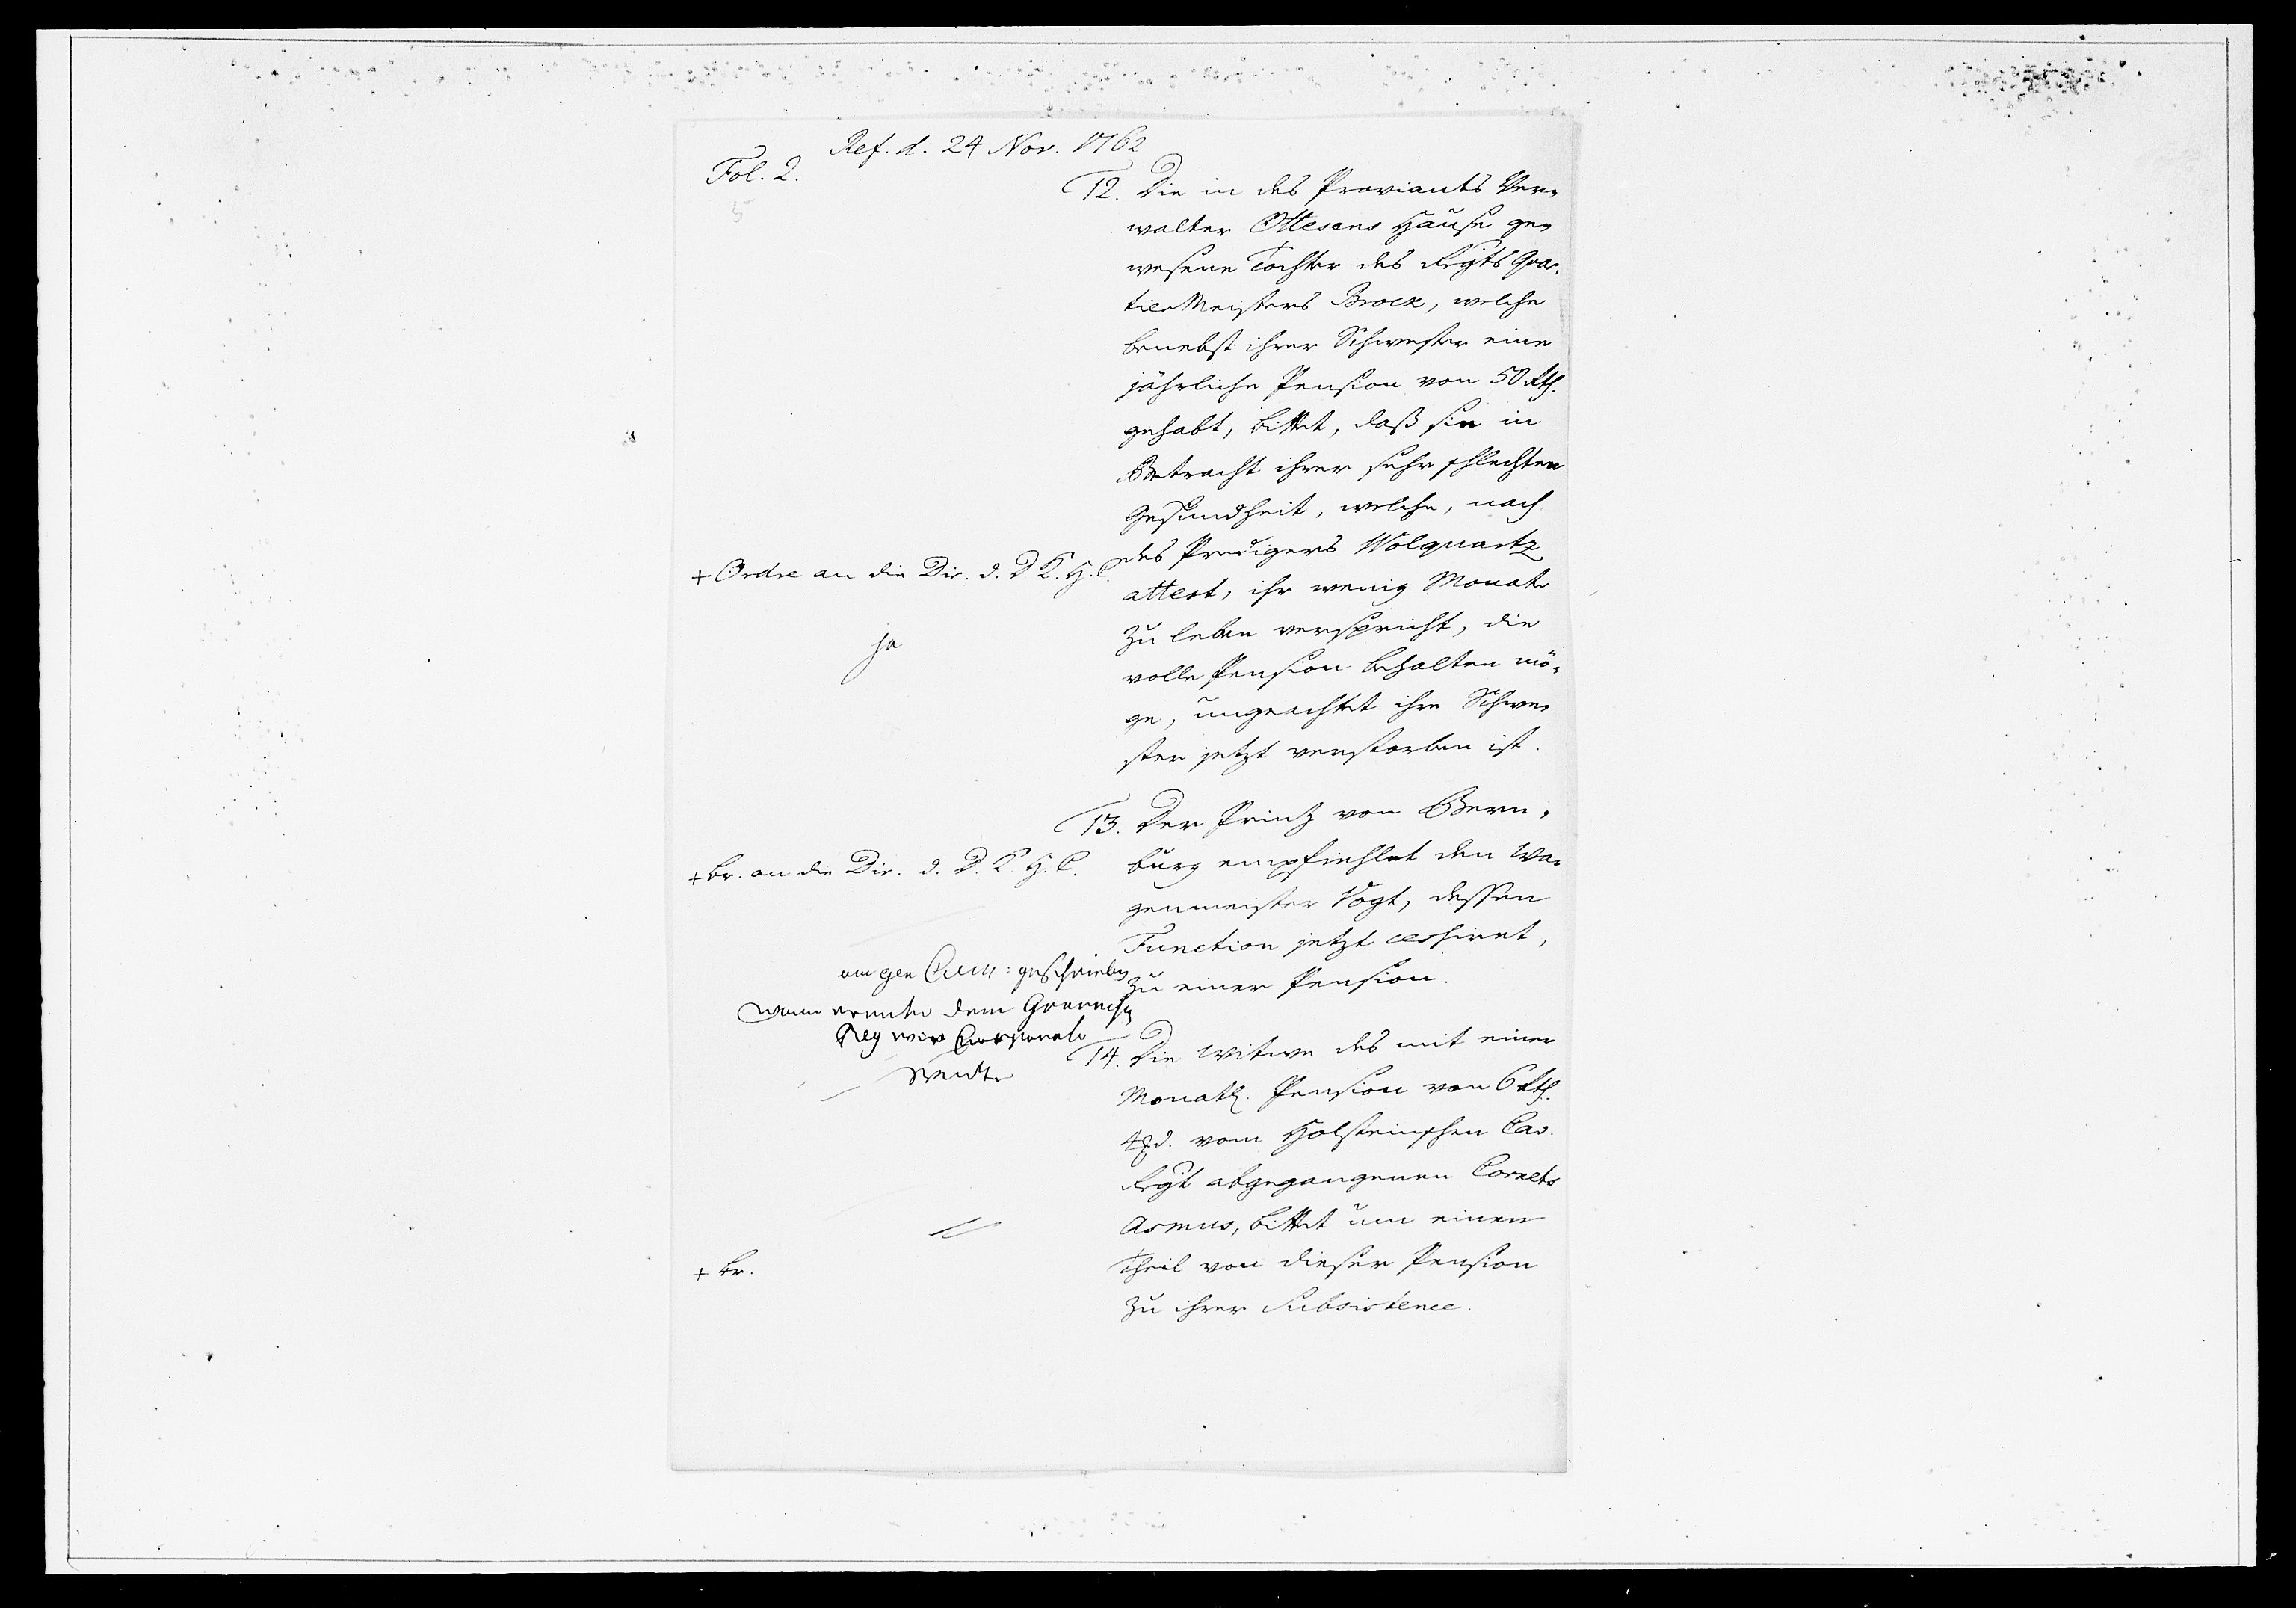 Ref. d. 24 Nov. 1762
Fol. 2.
5
12. Die in des Proviants Ver-
walter Ottesens Hause ge-
wesene Tochter des Regts Quar-
tier Meisters Brock, welche
benebst ihrer Schwester eine
jährliche Pension von 50 Rth.
gehabt, bittet, daß sie in
Betracht ihrer sehr schlechten
Gesundheit, welche, nach
des Predigers Wolquartz
attest, ihr wenig Monate
zu leben verspricht, die
volle Pension behalten mö-
ge, ungeachtet ihre Schwe-
ster jetzt verstorben ist.
+ Ordre an die Dir. d. D. K. H. C.
Ja
13. Der Prinz von Bern-
burg empfiehlet den Wa-
genmeister Vogt, dessen
Function jetzt cessiret,
zu einer Pension.
+ Br. an die Dir. d. D. K. H. C.
geschrieben
dem
Reg
14. Die Witwe des mit einer
Monatl. Pension von 6 Rth.
4 ß d. vom Holsteinschen Cav.
Regt abgegangenen Cornets
Asmus, bittet um einen
Theil von dieser Pension
zu ihrer Subsistence.
+ Br.